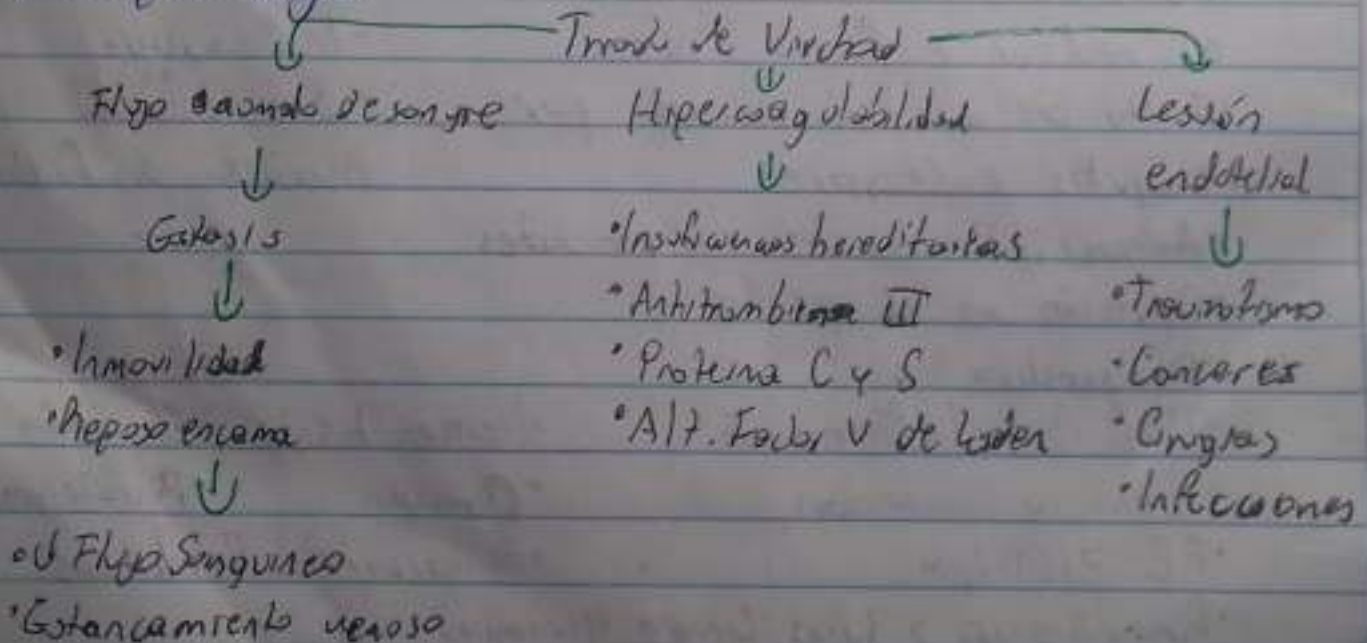 Triada de Virchad
Flujo anomalo de sangre
Estasis
•Inmovilidad
•Reposo en cama
•↓ Flujo Sanguineo
•Estancamiento venoso
Hipercoagulabilidad
•Insuficiencias hereditarias
•Antitrombina III
•Proteina C y S
•Alt. Factor V de Leiden
Lessión
endotelial
•Traumatismo
•Canceres
•Cirugias
•Infecciones